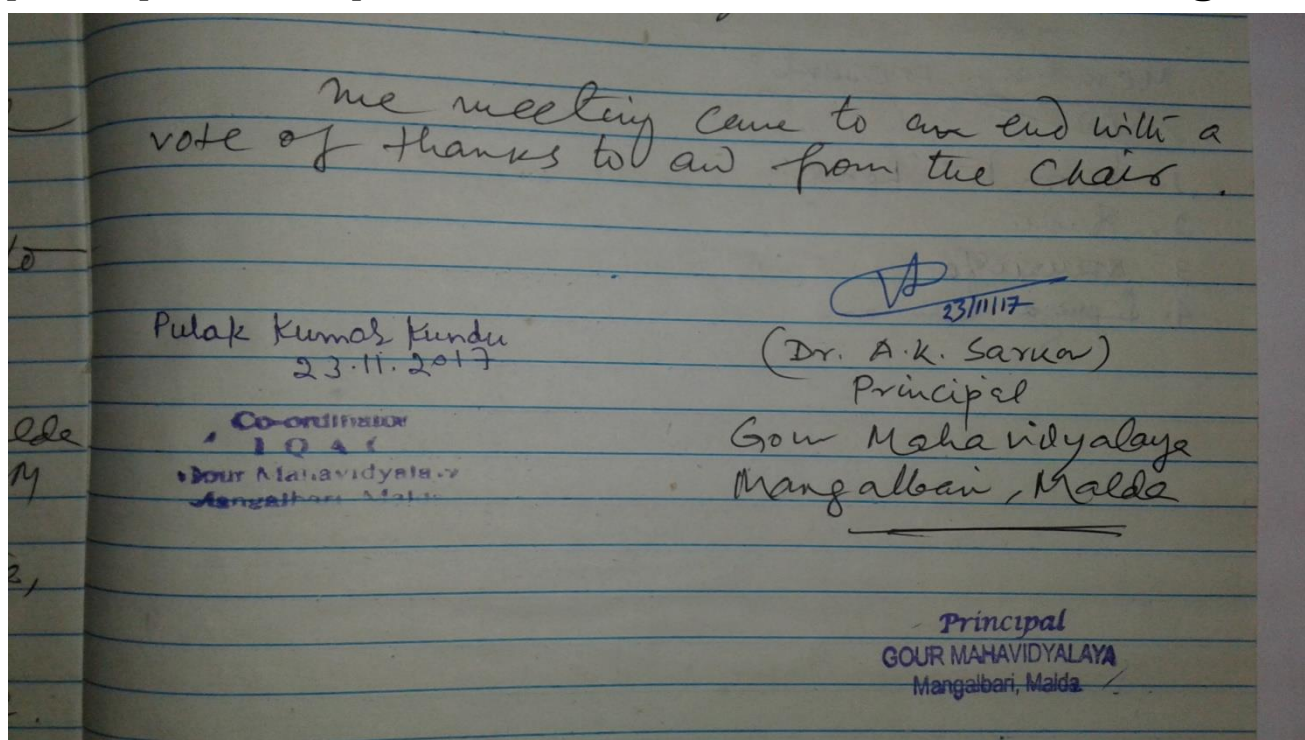 The meeting came to an end with a
vote of thanks to all from the Chair.
23/11/17
Pulak Kumar Kundu
23.11.2017
(Dr. A.K. Sarkar)
Principal
Gour Mahavidyalaya
Mangalbari, Malda
Co-ordinator
IQAC
Gour Mahavidyalaya
Mangalbari, Malda
Principal
GOUR MAHAVIDYALAYA
Mangalbari, Malda